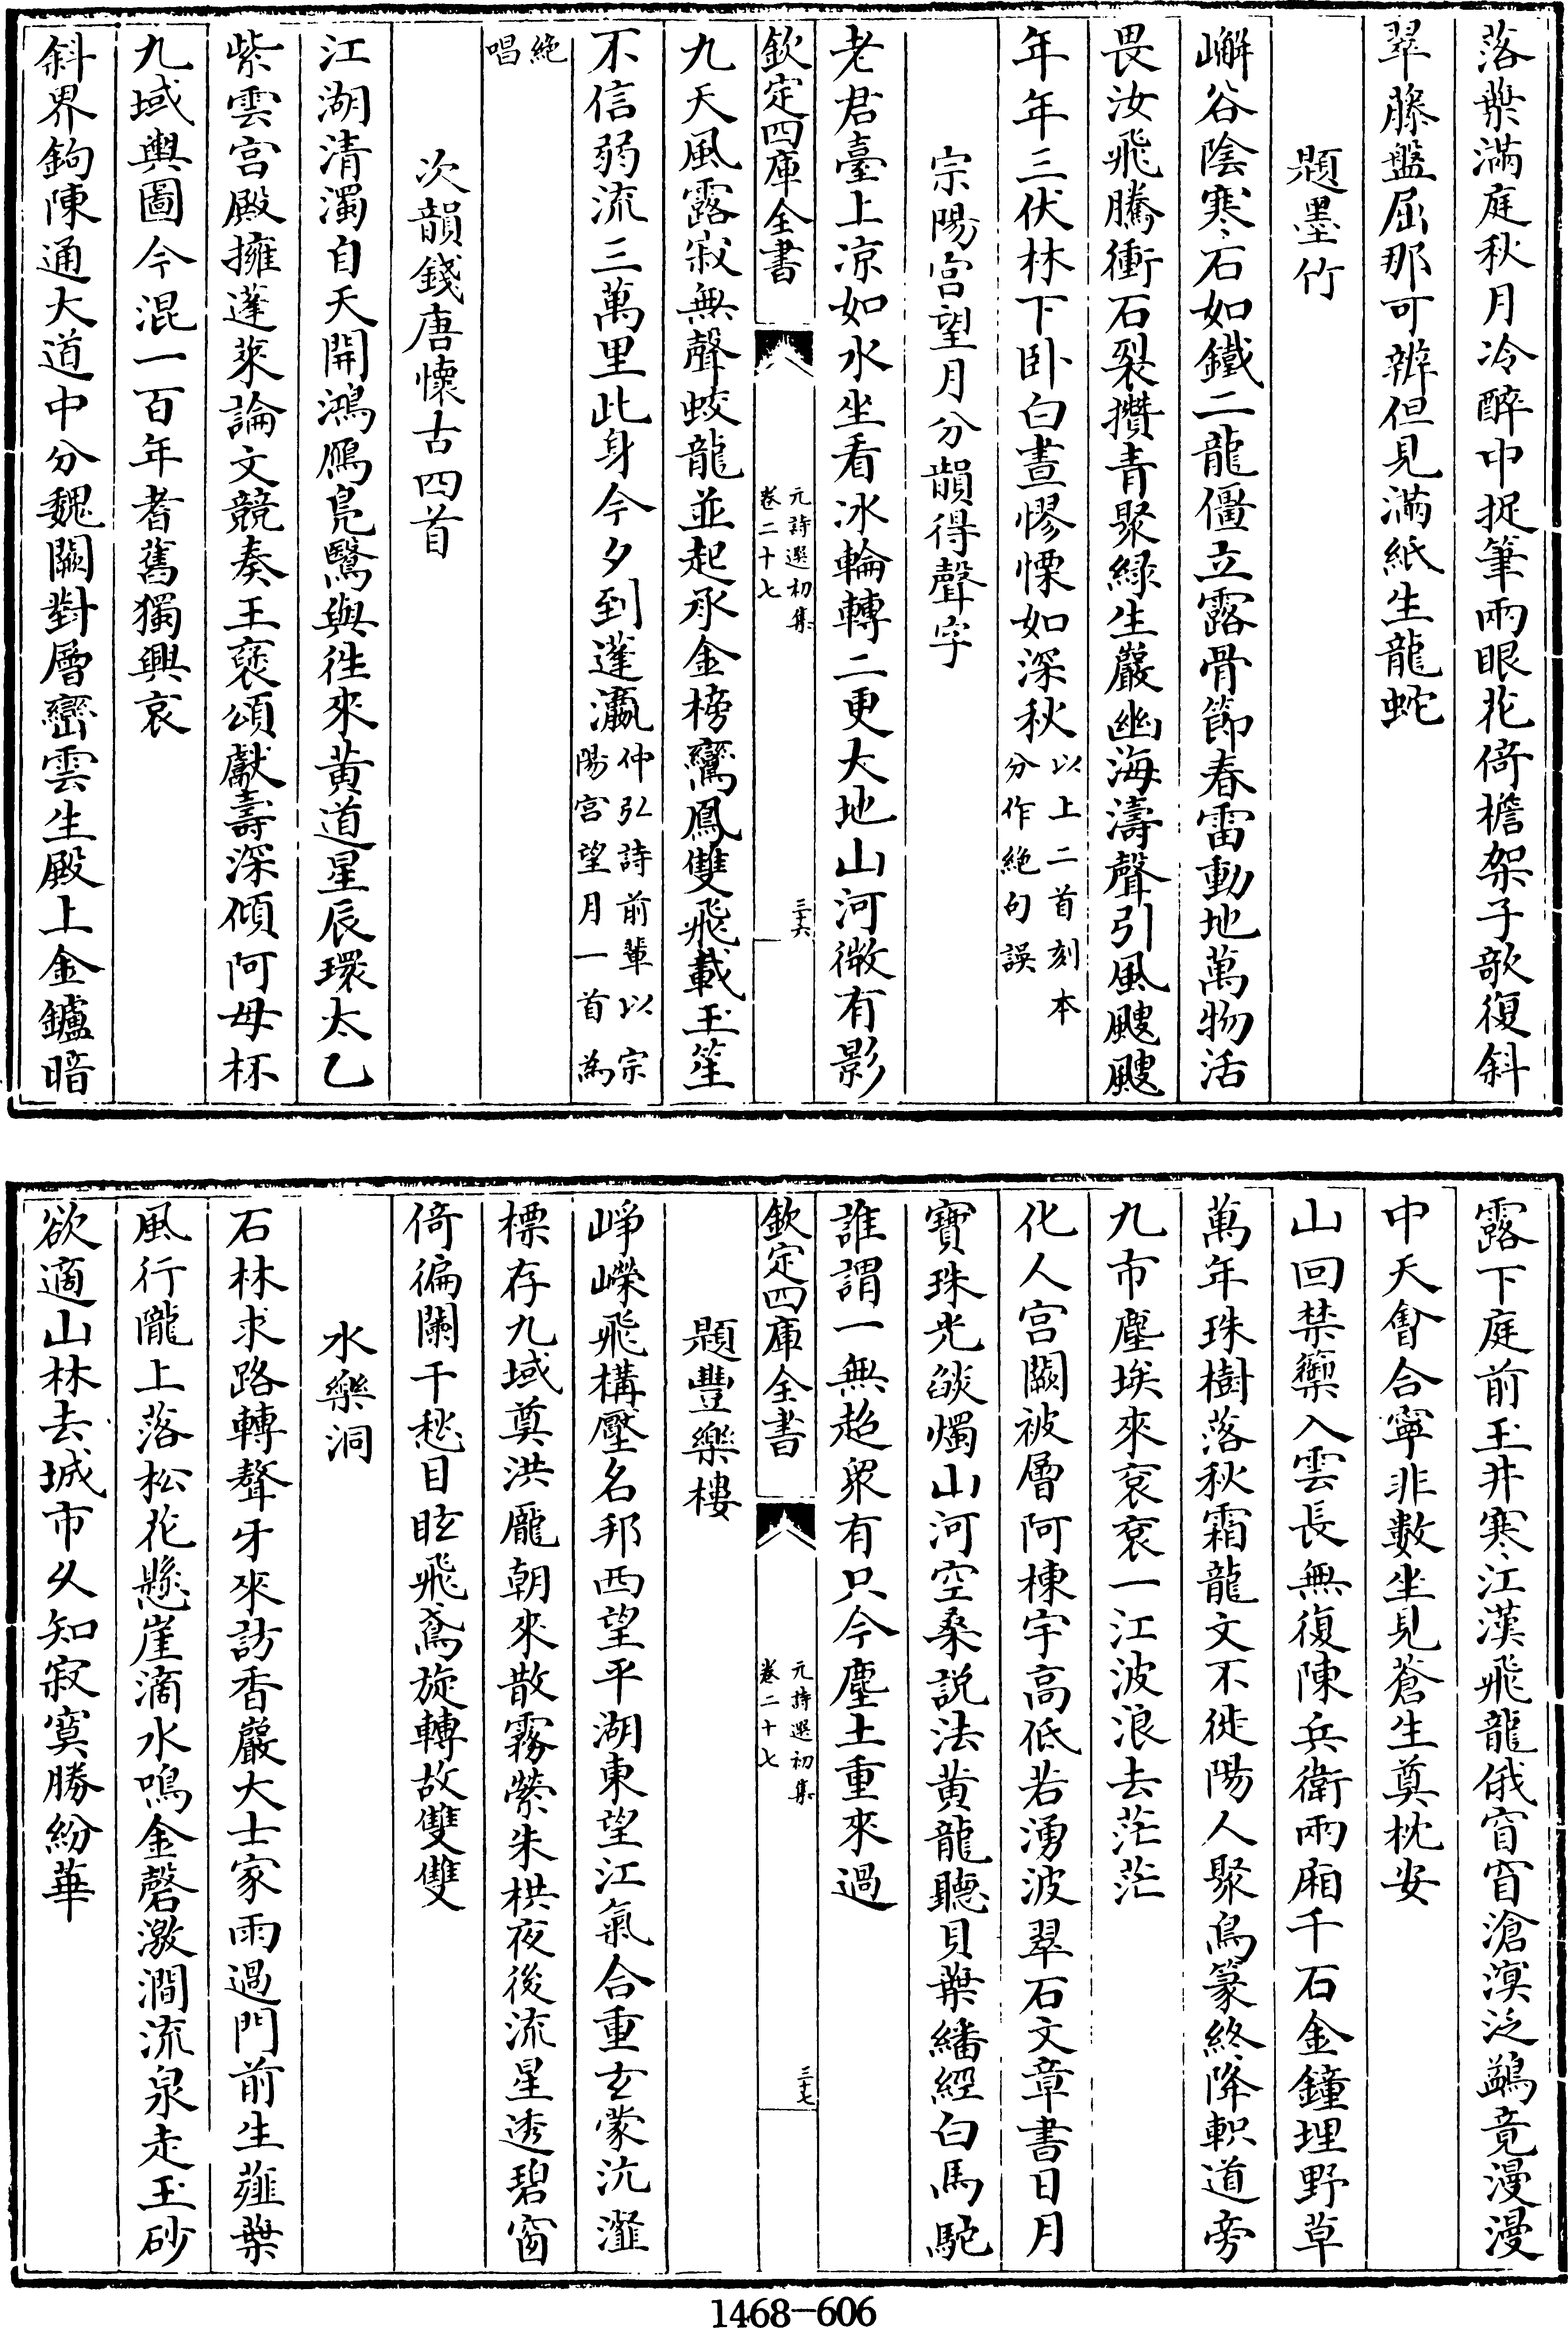 落葉滿庭秋月冷醉中捉筆兩眼花倚檐架子欹復斜
翠藤盤屈那可辨但見滿紙生龍蛇
題墨竹
嶰谷陰寒石如鐵二龍僵立露骨節春雷動地萬物活
畏汝飛騰衝石裂攢青聚緑生巖幽海濤聲引風颼颼
年年三伏林下卧白晝憀慄如深秋以上二首刻本
分作絶句誤
宗陽宫望月分韻得聲字
老君臺上凉如水坐看冰輪轉二更大地山河微有影
欽定四庫全書
元詩選初集
卷二十七
三十六
九天風露寂無聲蛟龍並起承金榜鸞鳳雙飛載玉笙
不信弱流三萬里此身今夕到蓬瀛仲弘詩前輩以宗
陽宫望月一首為
絶
唱
次韻錢唐懷古四首
江湖清濁自天開鴻鴈鳬鷖與徃來黄道星辰環太乙
紫雲宫殿擁蓬萊論文競奏王褒頌獻壽深傾阿母杯
九域輿圖今混一百年耆舊獨興哀
斜界鉤陳通大道中分魏闕對層巒雲生殿上金鑪暗
露下庭前玉井寒江漢飛龍俄窅窅滄溟泛鷁竟漫漫
中天㑹合寧非數坐見蒼生奠枕安
山回禁籞入雲長無復陳兵衛兩廂千石金鐘埋野草
萬年珠樹落秋霜龍文不徙陽人聚鳥篆終降軹道旁
九市塵埃來衮衮一江波浪去茫茫
化人宫闕被層阿棟宇高低若湧波翠石文章書日月
寶珠光燄燭山河空桑説法黄龍聽貝葉繙經白馬駝
誰謂一無超衆有只今塵土重來過
欽定四庫全書
元詩選初集
卷二十七
三十七
題豐樂樓
崢嶸飛構壓名邦西望平湖東望江氣合重玄蒙沆瀣
標存九域奠洪龎朝來散霧縈朱栱夜後流星透碧窗
倚徧闌干愁目眩飛鳶旋轉故雙雙
水樂洞
石林求路轉聱牙來訪香巖大士家雨過門前生薤葉
風行隴上落松花懸崖滴水鳴金磬激澗流泉走玉砂
欲適山林去城市久知寂寞勝紛華
1468-606